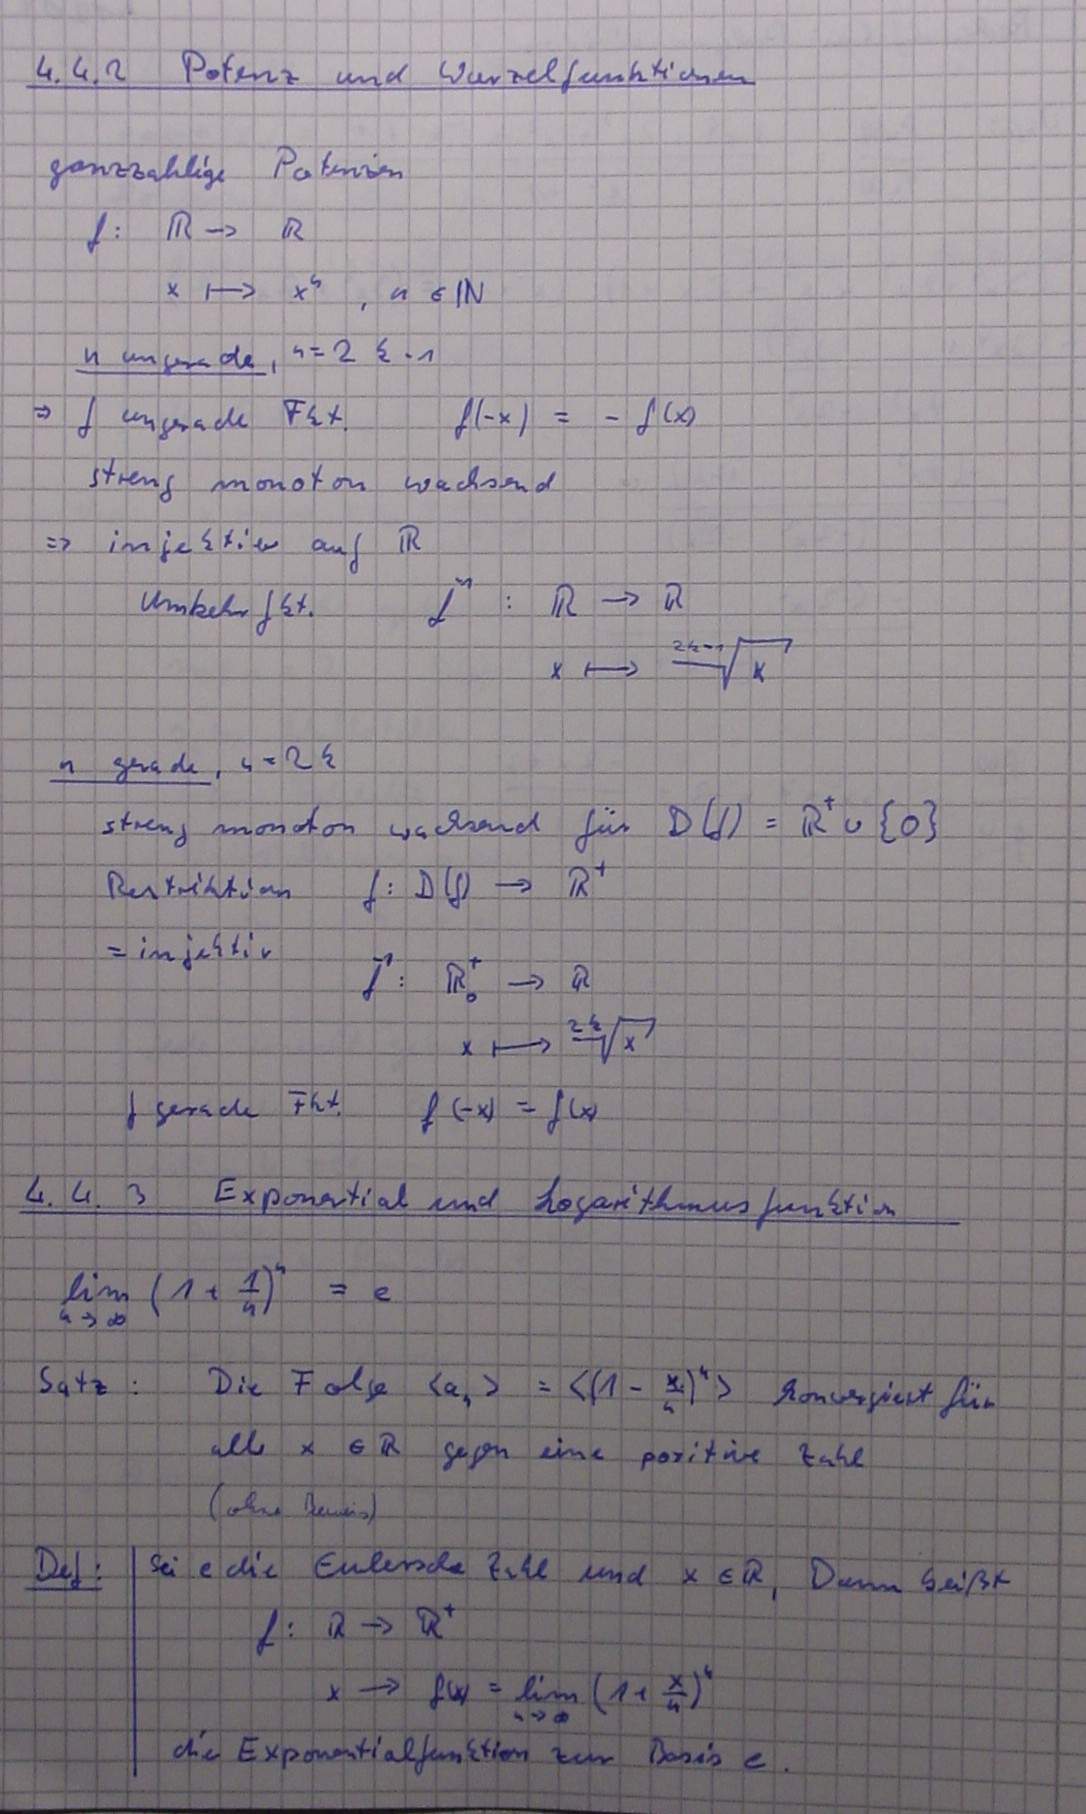 4.4.2 Potenz und Wurzelfunktionen
ganzzahlige Potenzen
f: ℝ → ℝ
x ↦ xⁿ, n ∈ ℕ
n ungerade, n = 2k-1
⇒ f ungerade Fkt. f(-x) = - f(x)
streng monoton wachsend
⇒ injektiv auf ℝ
Umkehrfkt. f⁻¹ : ℝ → ℝ
x ↦ ²ᵏ⁻¹√x
n gerade, n = 2k
streng monoton wachsend für D(f) = ℝ⁺ ∪ {0}
Restriktion f: D(f) → ℝ⁺
= injektiv
f⁻¹: ℝ₀⁺ → ℝ
x ↦ ²ᵏ√x
f gerade Fkt. f(-x) = f(x)
4.4.3 Exponential und Logarithmusfunktion
lim n→∞ (1 + 1/n)ⁿ = e
Satz: Die Folge <aₙ> = <(1 - x/n)ⁿ> konvergiert für
alle x ∈ ℝ gegen eine positive Zahl
(ohne Beweis)
Def: Sei e die Eulersche Zahl und x ∈ ℝ, Dann heißt
f: ℝ → ℝ⁺
x → f(x) = lim n→∞ (1 + x/n)ⁿ
die Exponentialfunktion zur Basis e.